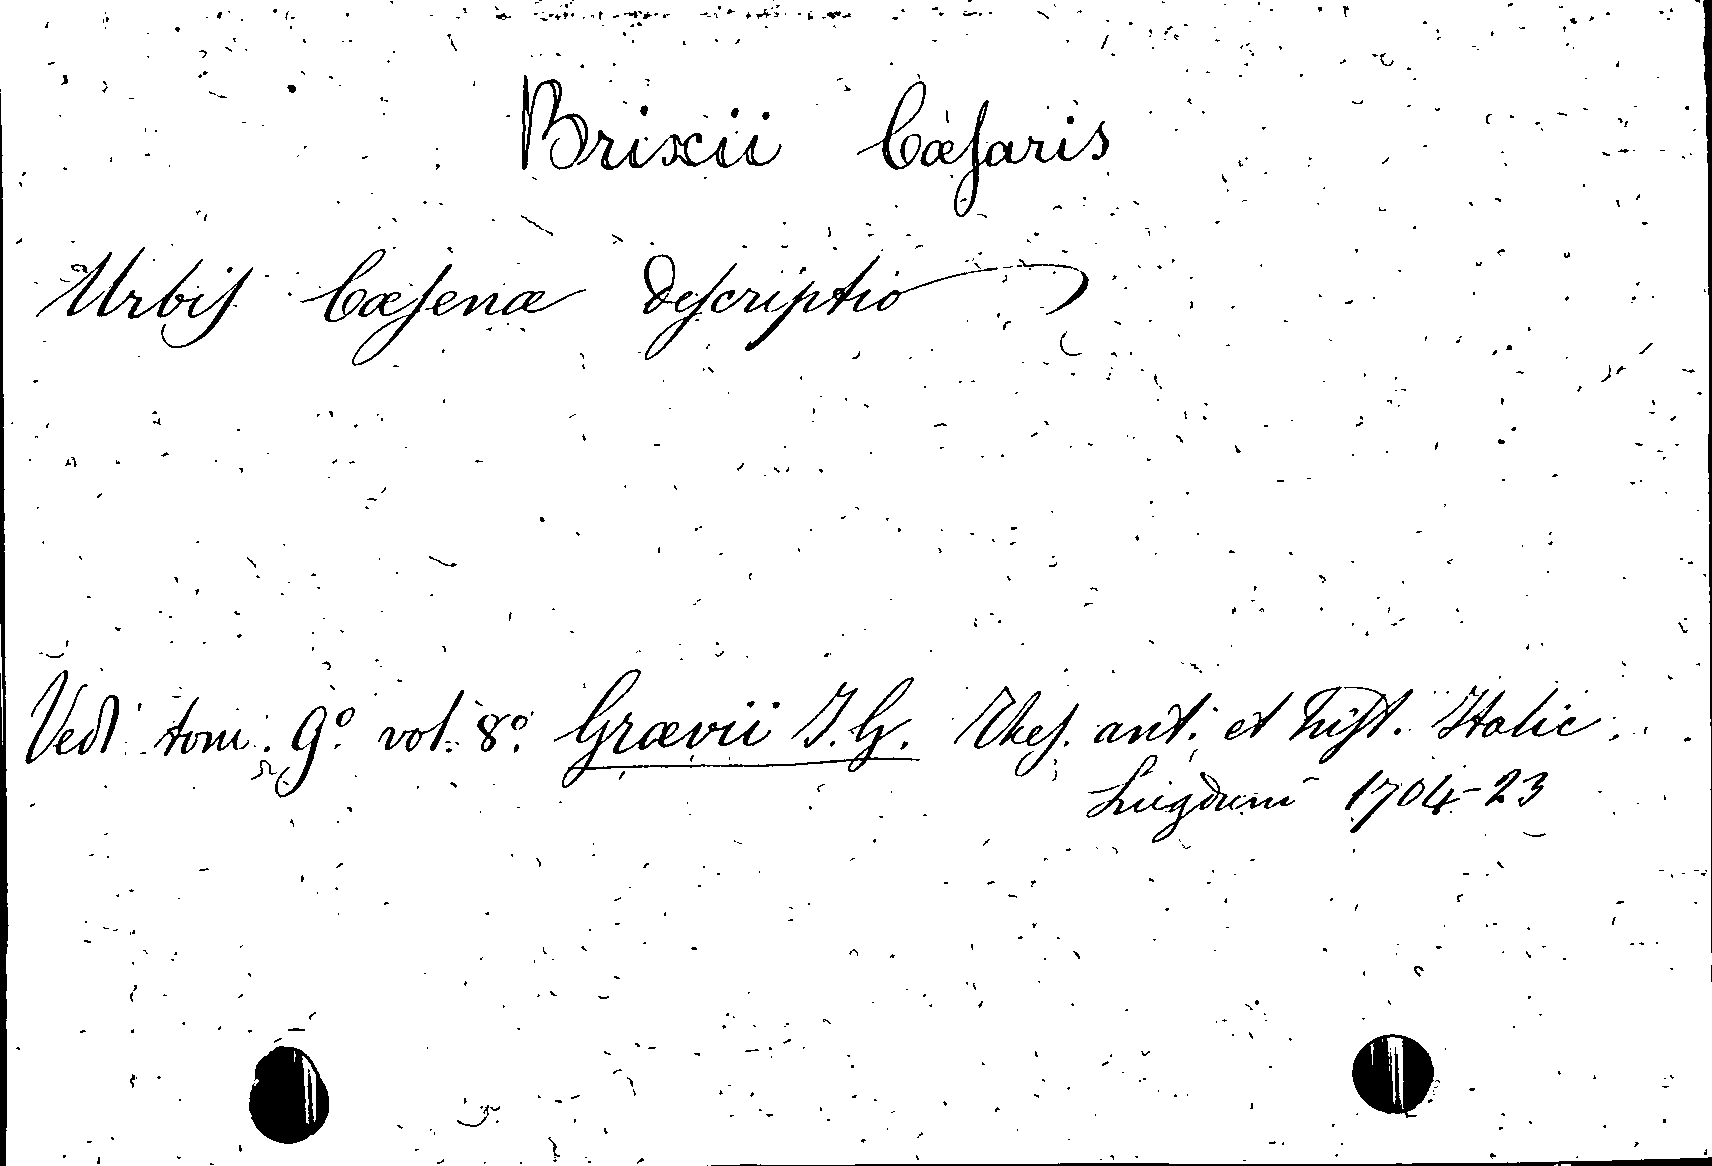 Brixii Cæsaris
Urbis Cæsenæ descriptio
Vedi tom. 9º vol. 8º Grævii I. G. Thes. ant. et hist. Italic.
Lugduni 1704-23